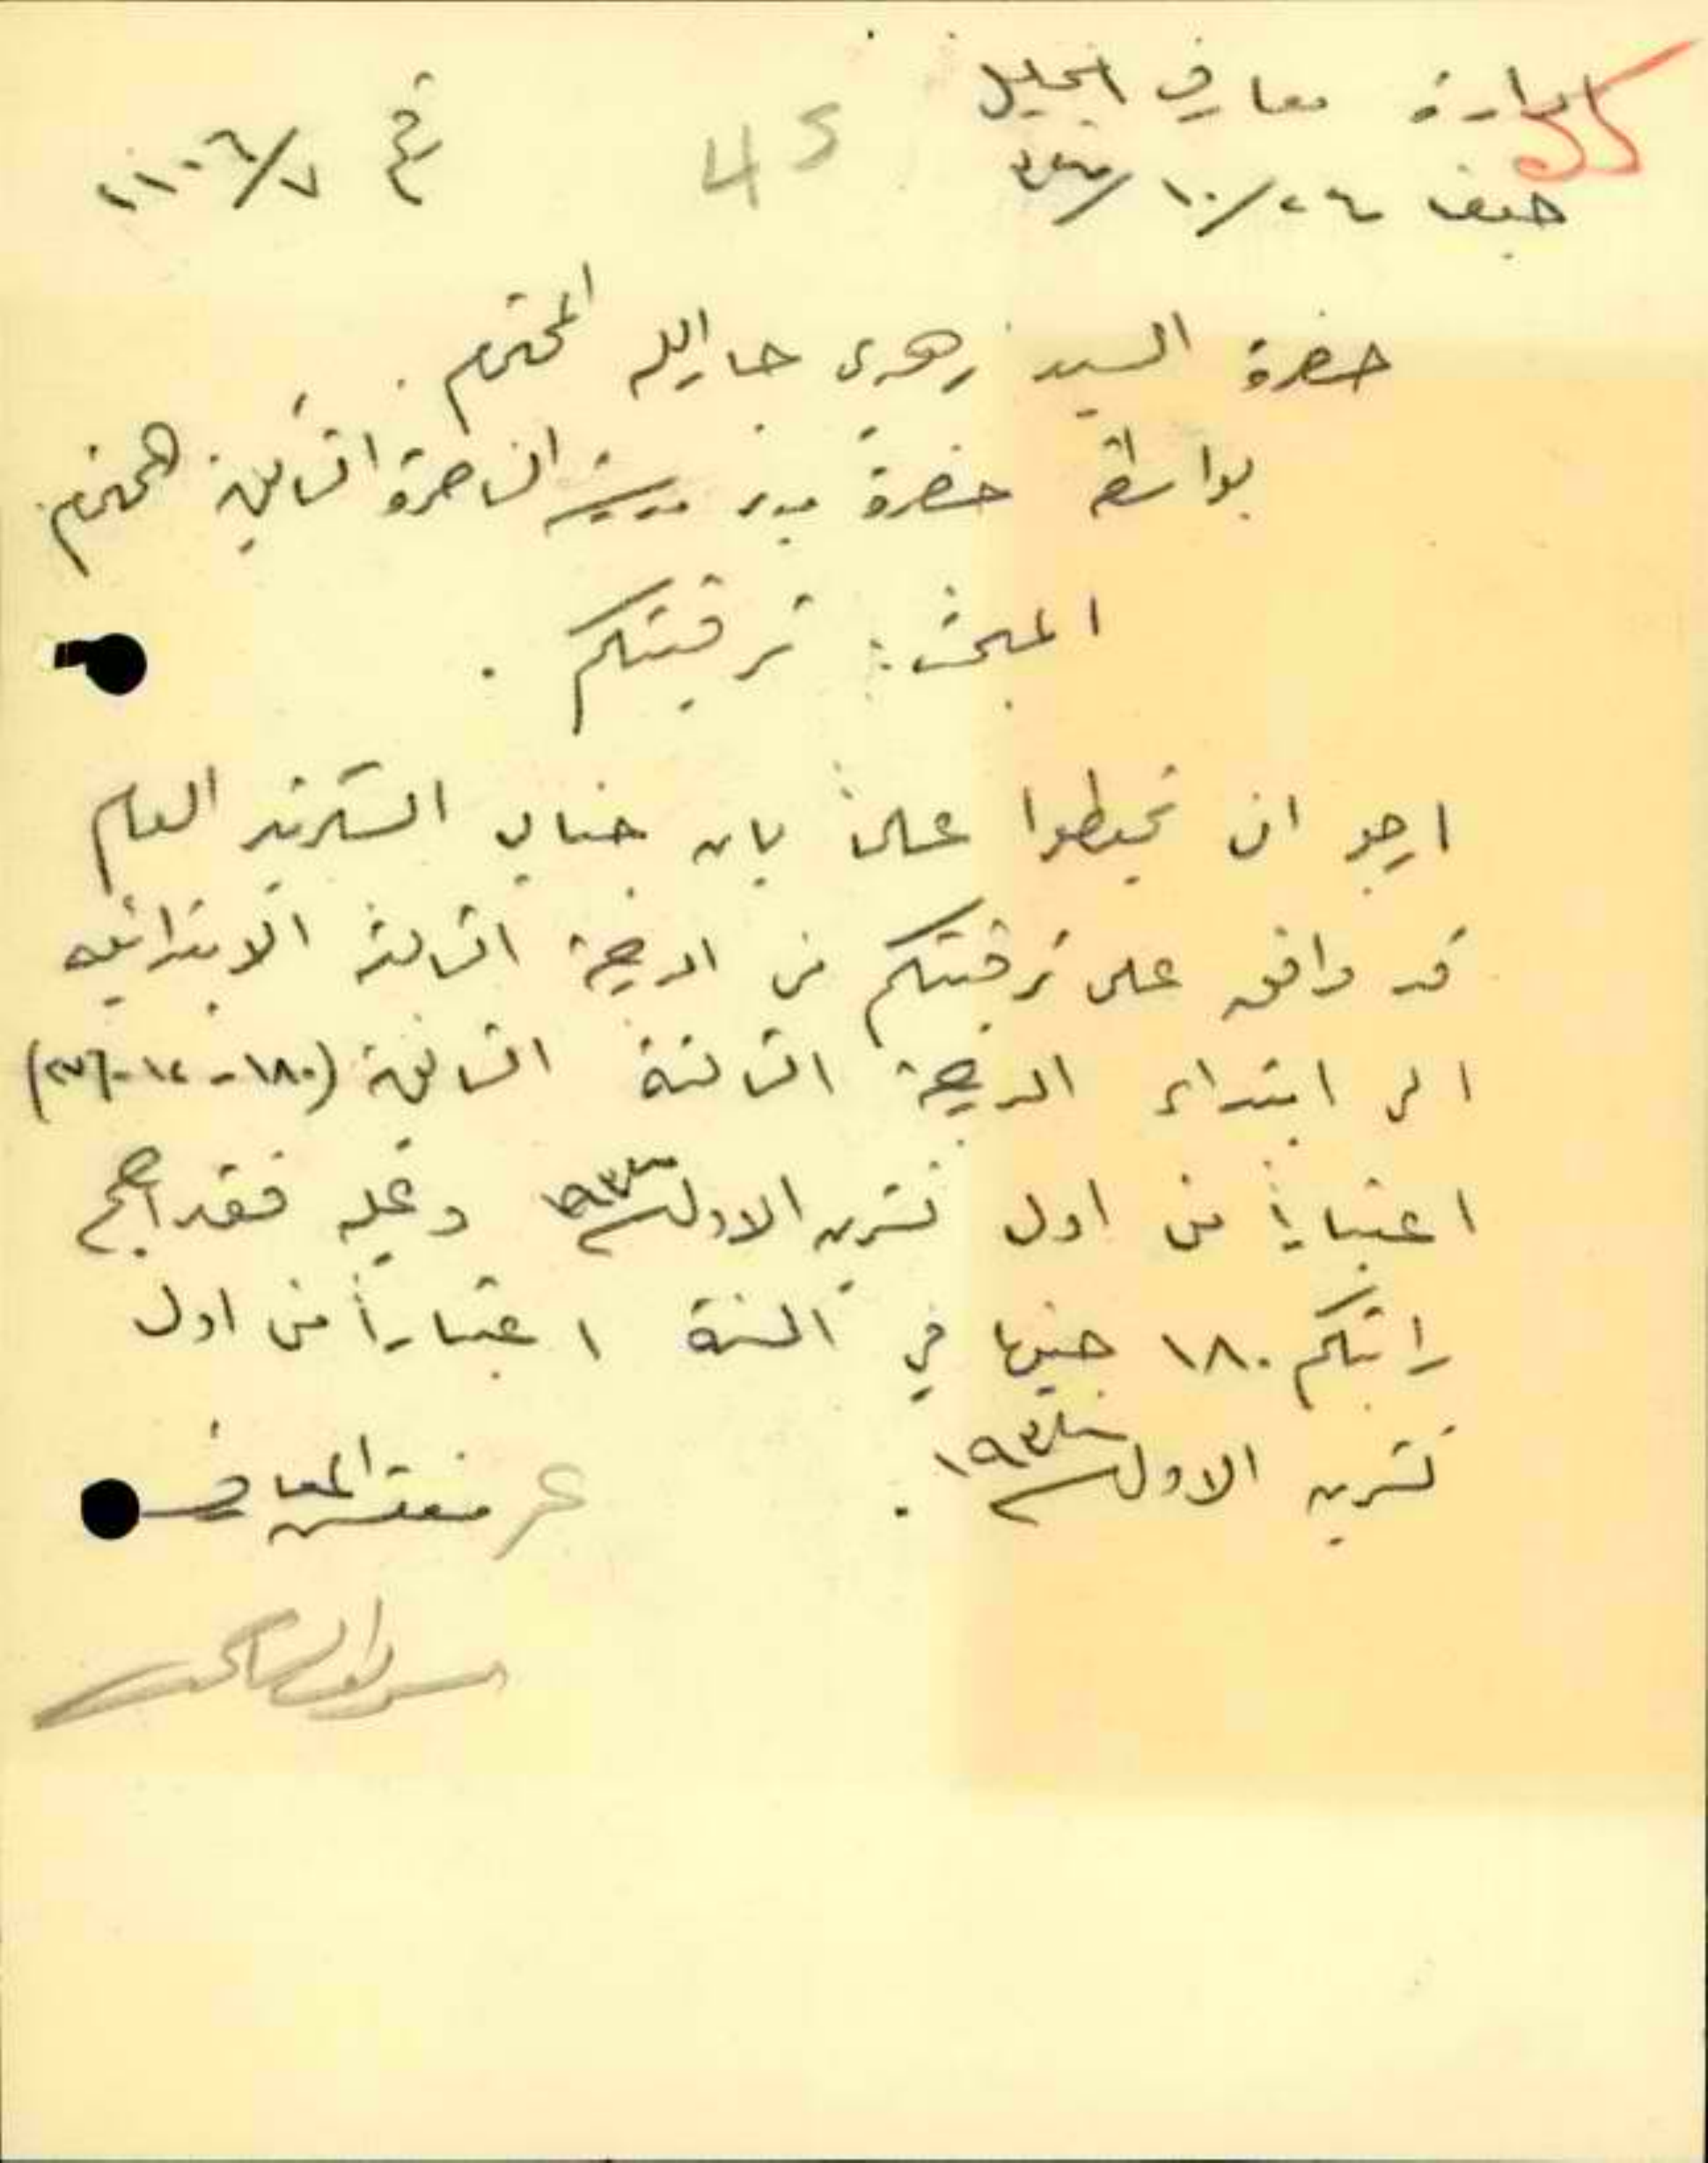 ادارة معارف الجليل
45
حيفا ٢٤/١٠/
رقم ٧/١١٠٦
حضرة السيد زهدي جار الله المحترم.
بواسطة حضرة مدير مدرسة الناصرة الثانوية المحترم
المبحث: ترقيتكم.
ارجو ان تحيطوا علماً بان جناب السكرتير العام
قد وافق على ترقيتكم من الدرجة الثالثة الابتدائيه
الى ابتداء الدرجة الثالثة الثانوية (١٨٠-١٢-)
اعتباراً من اول تشرين الاول وعليه فقد اصبح
راتبكم ١٨٠ جنيها في السنة اعتباراً من اول
تشرين الاول.
عن مفتش المعارف